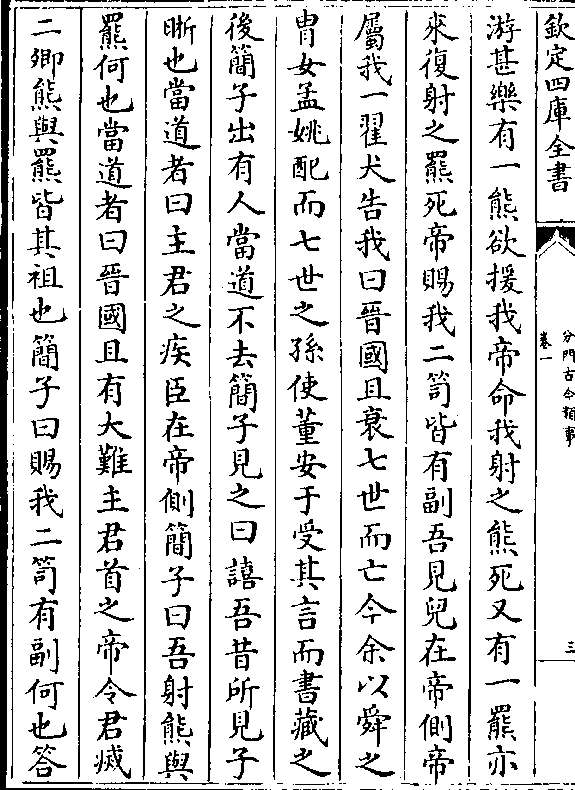 欽定四庫全書
分門古今類事
卷一
三
游甚樂有一熊欲援我帝命我射之熊死又有一羆亦
來復射之羆死帝賜我二笥皆有副吾見兒在帝側帝
屬我一翟犬告我曰晉國且衰七世而亡今余以舜之
胄女孟姚配而七世之孫使董安于受其言而書藏之
後簡子出有人當道不去簡子見之曰譆吾昔所見子
晣也當道者曰主君之疾臣在帝側簡子曰吾射熊與
羆何也當道者曰晉國且有大難主君首之帝令君烕
二卿熊與羆皆其祖也簡子曰賜我二笥有副何也答